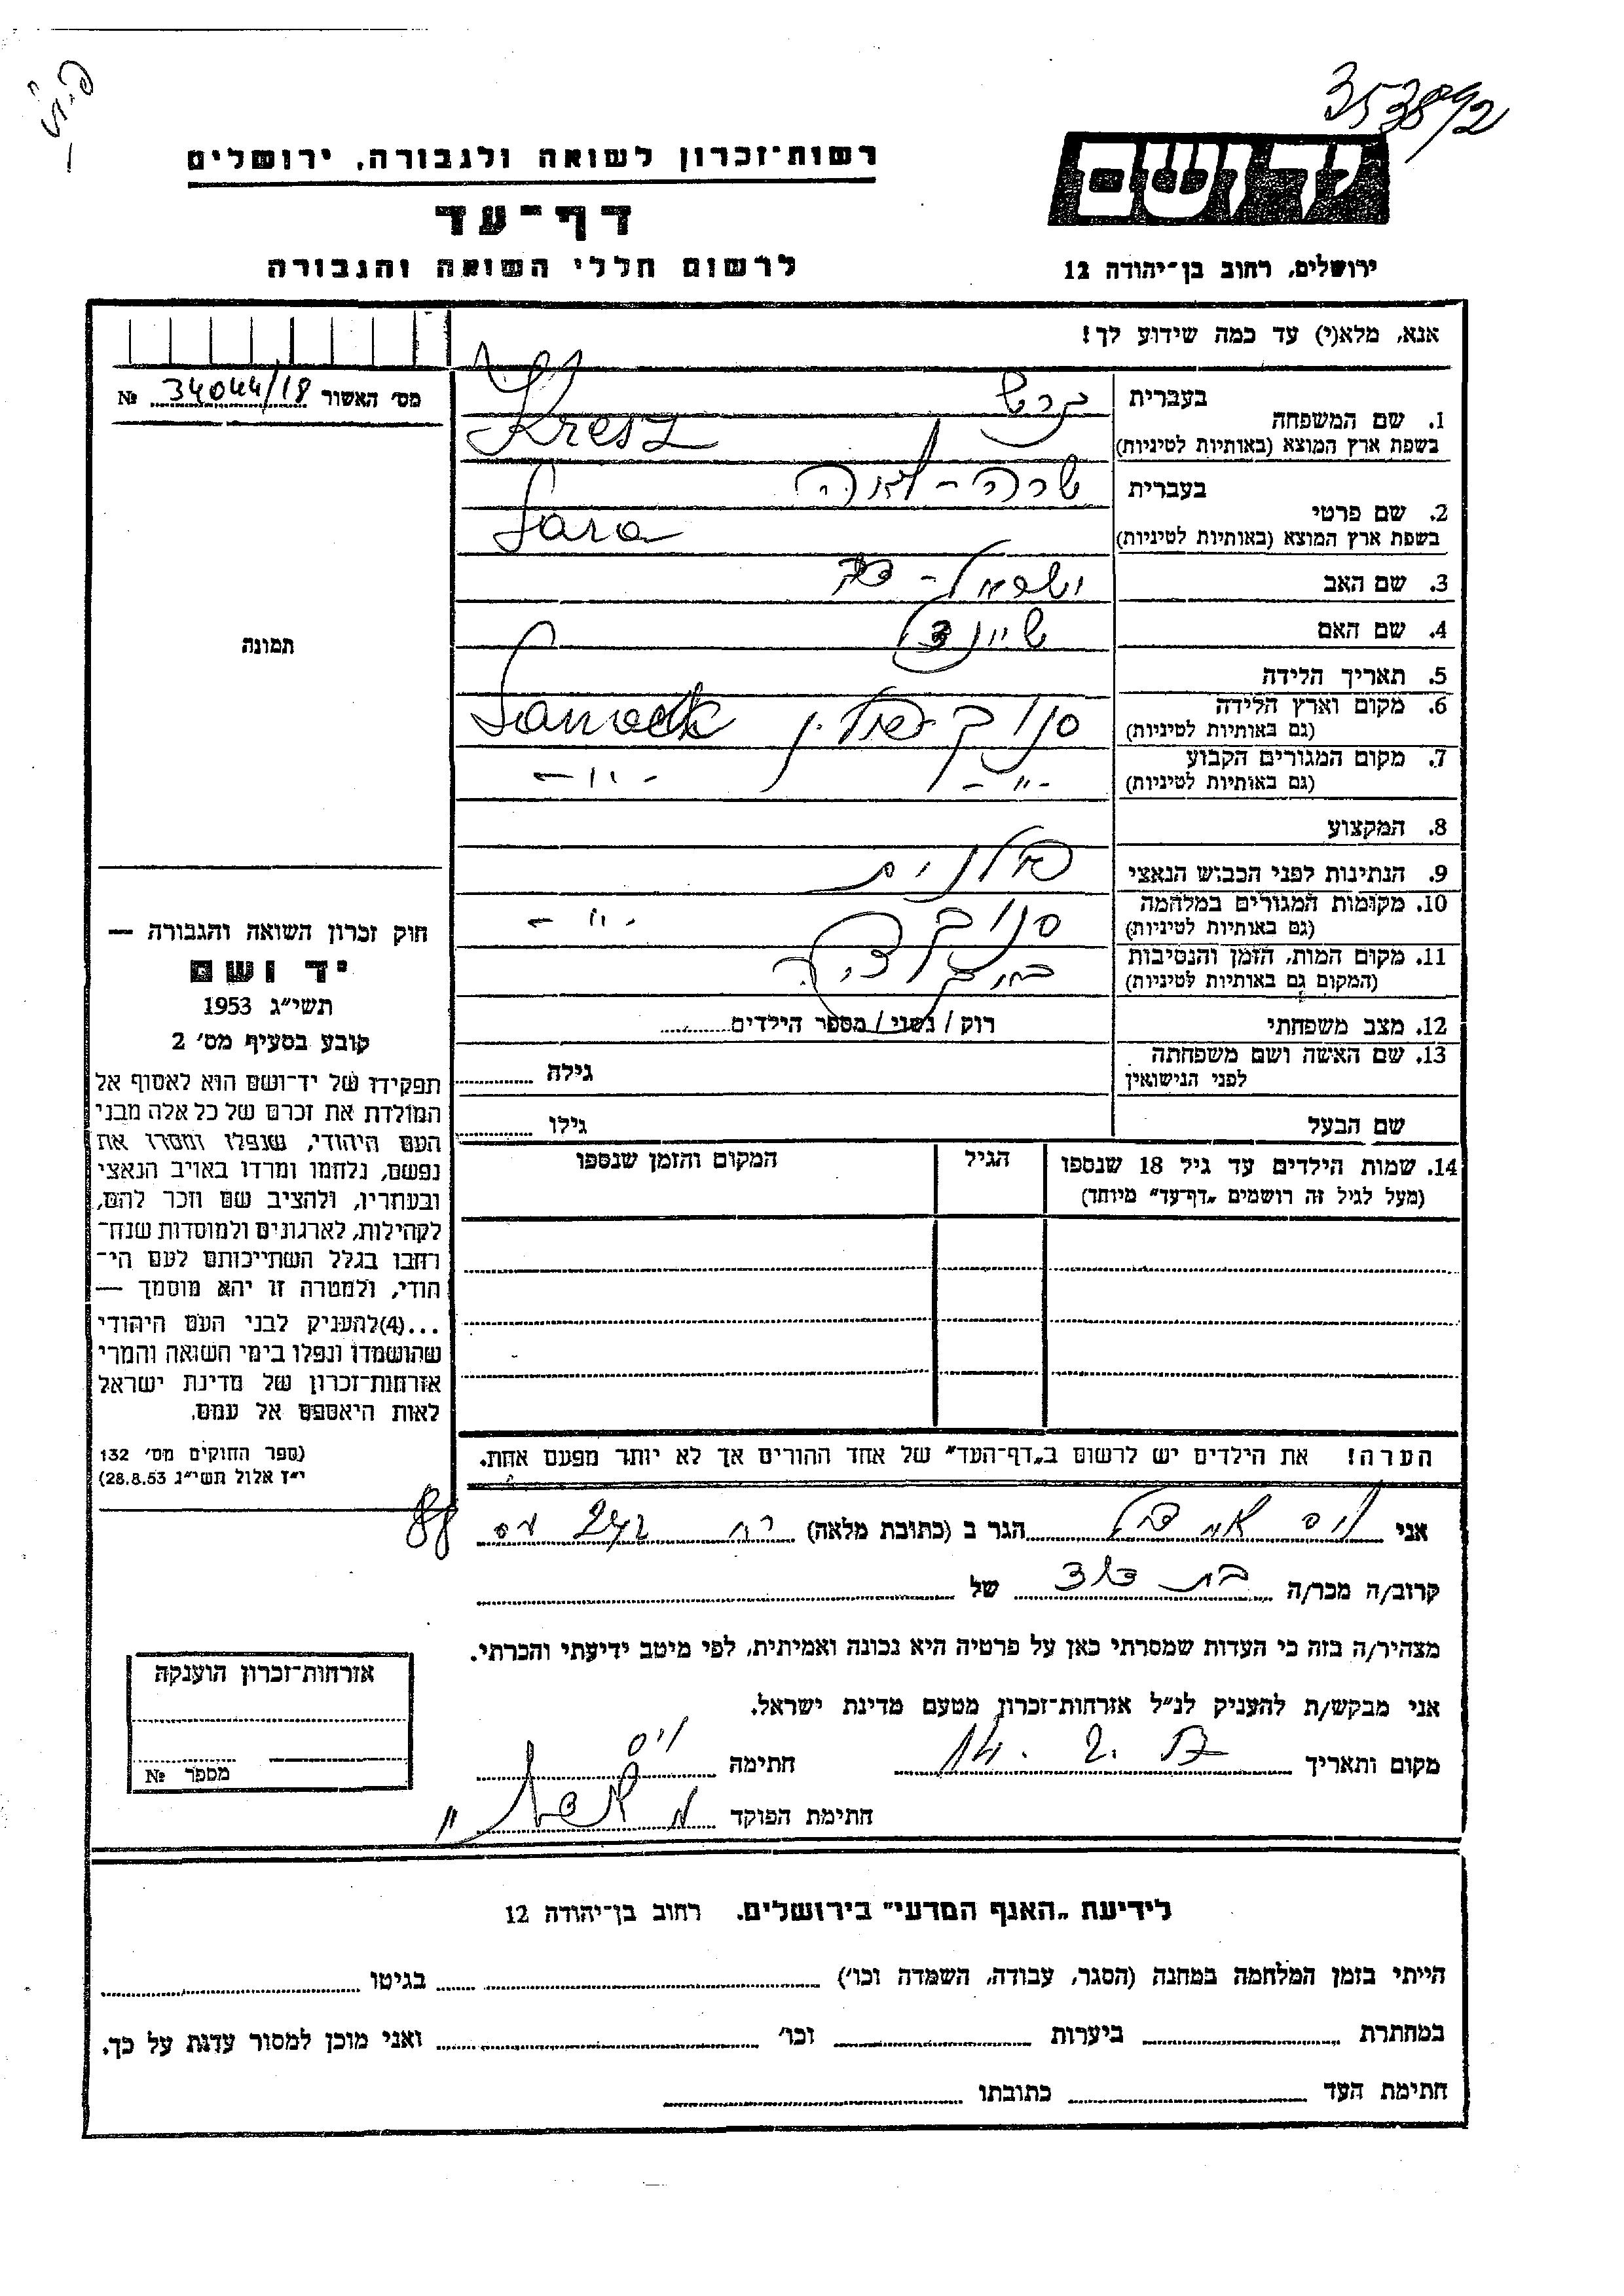 353892
רשות־זכרון לשואה ולגבורה, ירושלים
דף־עד
לרשום חללי השואה והגבורה
יד ושם
ירושלים, רחוב בן־יהודה 12
אנא, מלא(י) עד כמה שידוע לך!
מס׳ האשור 34044/18 №
1. שם המשפחה
בעברית קרש
בשפת ארץ המוצא (באותיות לטיניות) Kresz
2. שם פרטי
בעברית שרה - לאה
בשפת ארץ המוצא (באותיות לטיניות) Sara
3. שם האב
4. שם האם
5. תאריך הלידה
6. מקום וארץ הלידה
(גם באותיות לטיניות)
סנוק פולין Sanock
7. מקום המגורים הקבוע
(גם באותיות לטיניות)
-"- -"-
8. המקצוע
9. הנתינות לפני הכבוש הנאצי פולנית
10. מקומות המגורים במלחמה
(גם באותיות לטיניות)
סנוק -"-
11. מקום המות, הזמן והנסיבות
(המקום גם באותיות לטיניות)
12. מצב משפחתי רוק / נשוי / מספר הילדים
13. שם האשה ושם משפחתה
לפני הנישואין
גילה
שם הבעל גילו
14. שמות הילדים עד גיל 18 שנספו
(מעל לגיל זה רושמים „דף־עד״ מיוחד)
הגיל
המקום והזמן שנספו
תמונה
חוק זכרון השואה והגבורה —
יד ושם
תשי״ג 1953
קובע בסעיף מס׳ 2
תפקידו של יד־ושם הוא לאסוף אל
המולדת את זכרם של כל אלה מבני
העם היהודי, שנפלו ומסרו את
נפשם, נלחמו ומרדו באויב הנאצי
ובעוזריו, ולהציב שם וזכר להם,
לקהילות, לארגונים ולמוסדות שנח־
רחבו בגלל השתייכותם לעם הי־
הודי, ולמטרה זו יהא מוסמך —
...(4)להעניק לבני העם היהודי
שהושמדו ונפלו בימי השואה והמרי
אזרחות־זכרון של מדינת ישראל
לאות היאספם אל עמם.
(ספר החוקים מס׳ 132
י״ז אלול תשי״ג 28.8.53)
הערה! את הילדים יש לרשום ב„דף־העד״ של אחד ההורים אך לא יותר מפעם אחת.
אני הגר ב (כתובת מלאה) 88
קרוב/ה מכר/ה בת דוד של
מצהיר/ה בזה כי העדות שמסרתי כאן על פרטיה היא נכונה ואמיתית, לפי מיטב ידיעתי והכרתי.
אני מבקש/ת להעניק לנ״ל אזרחות־זכרון מטעם מדינת ישראל.
מקום ותאריך חתימה
חתימת הפוקד
אזרחות־זכרון הוענקה
מספר №
לידיעת „האגף המדעי״ בירושלים. רחוב בן־יהודה 12
הייתי בזמן המלחמה במחנה (הסגר, עבודה, השמדה וכו׳) בגיטו
במחתרת ביערות וכו׳ ואני מוכן למסור עדות על כך.
חתימת העד כתובתו